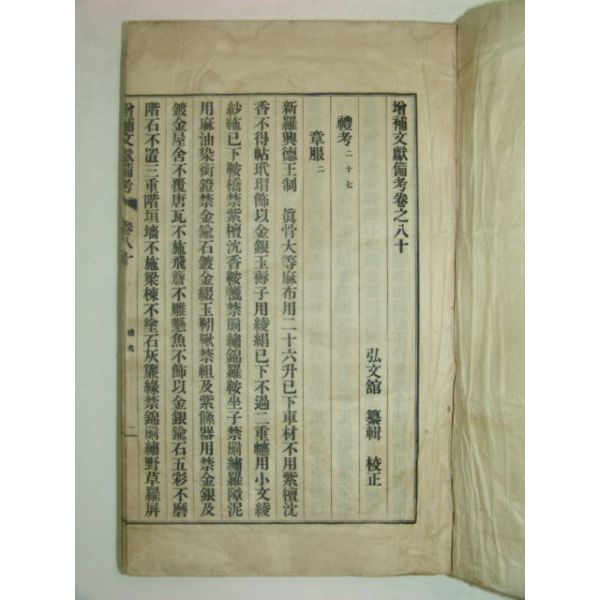 增補文獻備考卷之八十
弘文舘 纂輯 校正
禮考二十七
章服二
新羅興德王制 眞骨大等麻布用二十六升已下車材不用紫檀沈
香不得帖玳瑁飾以金銀玉褥子用綾絹已下不過二重幰用小文綾
紗絁已下鞍橋禁紫檀沈香鞍韉禁罽繡錦羅鞍坐子禁罽繡羅障泥
用麻油染銜鐙禁金鍮石鍍金綴玉靷鞦禁組及紫絛器用禁金銀及
鍍金屋舍不覆唐瓦不施飛簷不雕懸魚不飾以金銀鍮石五彩不磨
階石不置三重階垣墻不施梁棟不塗石灰簾緣禁錦罽繡野草羅屛
增補文獻備考 卷八十 禮考 一